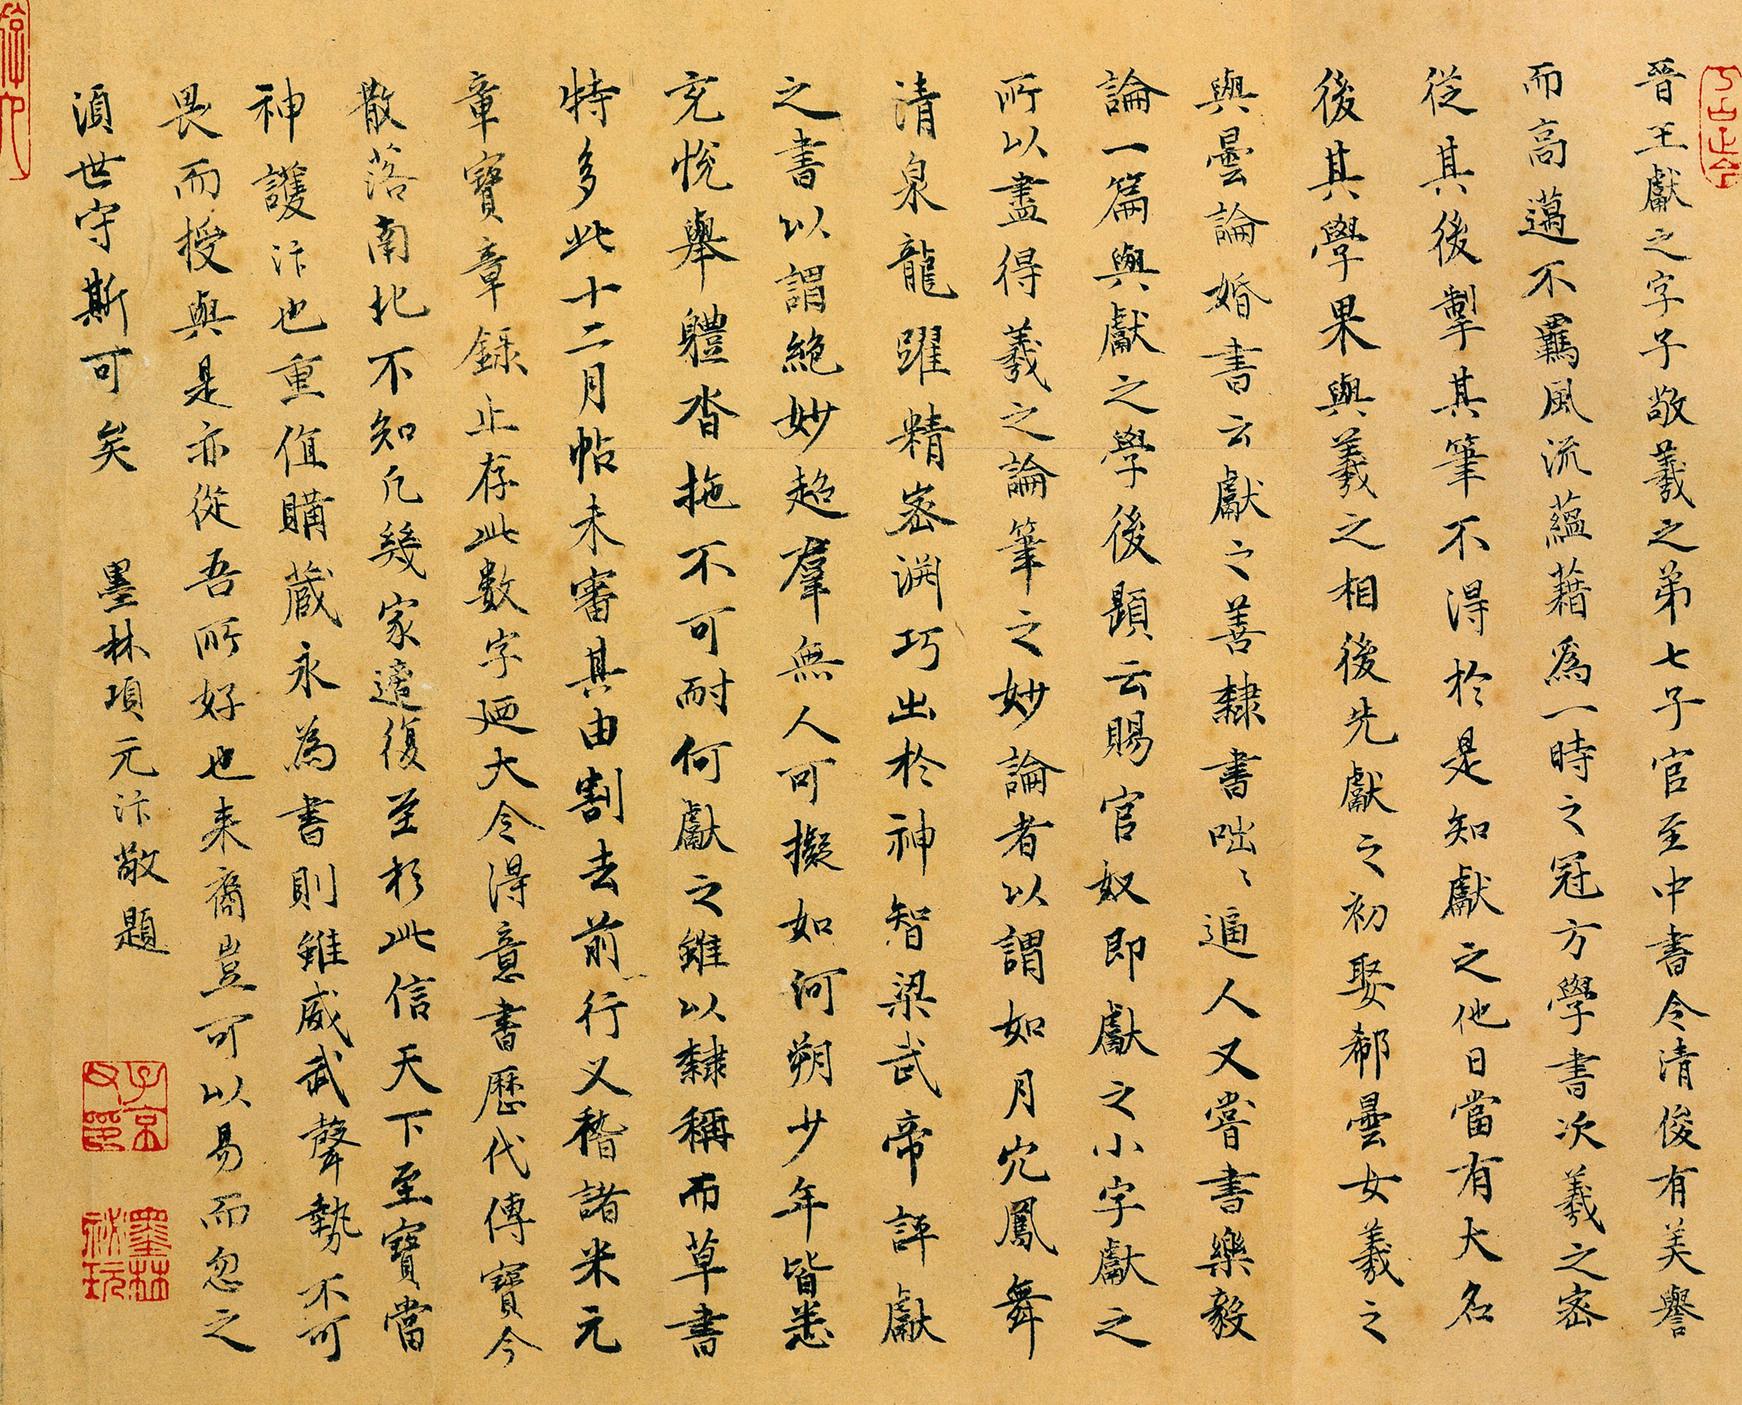 晉王獻之字子敬羲之弟七子官至中書令清俊有美譽
而高邁不羈風流蘊藉爲一時之冠方學書次羲之密
從其後掣其筆不得於是知獻之他日當有大名
後其學果與羲之相後先獻之初娶郗曇女羲之
與曇論婚書云獻之善隸書咄〻逼人又嘗書樂毅
論一篇與獻之學後題云賜官奴即獻之小字獻之
所以盡得羲之論筆之妙論者以謂如月穴鳳舞
清泉龍躍精密淵巧出於神智梁武帝評獻
之書以謂絶妙超羣無人可擬如河朔少年皆悉
充悅舉體沓拖不可耐何獻之雖以隸稱而草書
特多此十二月帖未審其由割去前行又稽諸米元
章寶章錄止存此數字廼大令得意書歷代傳寶今
散落南北不知凡幾家適復至於此信天下至寶當
神護汴也重值購藏永為書則雖威武聲勢不可
畏而授與是亦從吾所好也来裔豈可以易而忽之
須世守斯可矣 墨林項元汴敬題
子京父印
墨林祕玩